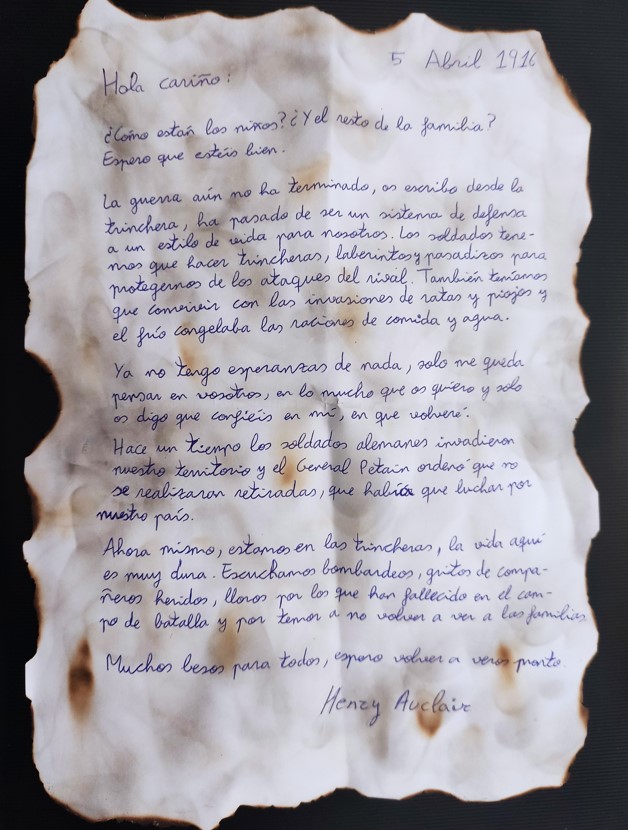 5 Abril 1916
Hola cariño:
¿Cómo están los niños? ¿Y el resto de la familia?
Espero que estéis bien.
La guerra aún no ha terminado, os escribo desde la
trinchera, ha pasado de ser un sistema de defensa
a un estilo de vida para nosotros. Los soldados tene-
mos que hacer trincheras, laberintos y pasadizos para
protegernos de los ataques del rival. También teníamos
que convivir con las invasiones de ratas y piojos y
el frío congelaba las raciones de comida y agua.
Ya no tengo esperanzas de nada, solo me queda
pensar en vosotros, en lo mucho que os quiero y solo
os digo que confiéis en mí, en que volveré.
Hace un tiempo los soldados alemanes invadieron
nuestro territorio y el General Petain ordenó que no
se realizaran retiradas, que había que luchar por
nuestro país.
Ahora mismo, estamos en las trincheras, la vida aquí
es muy dura. Escuchamos bombardeos, gritos de compa-
ñeros heridos, lloros por los que han fallecido en el cam-
po de batalla y por temor a no volver a ver a las familias.
Muchos besos para todos, espero volver a veros pronto.
Henry Auclair